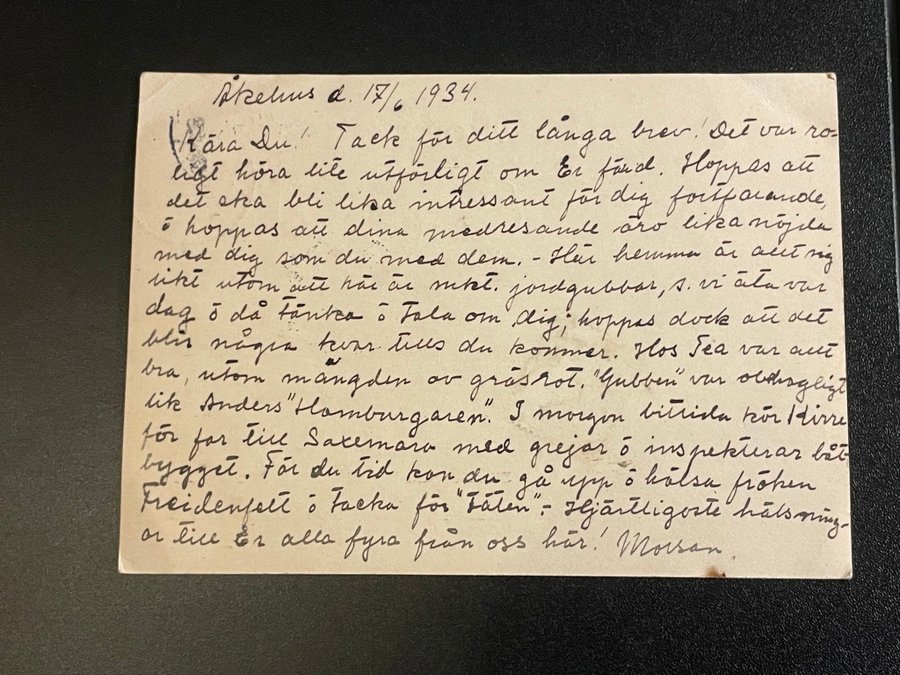 Åkehus d. 17/6 1934.
Kära Du! Tack för ditt långa brev! Det var ro-
ligt höra lite utförligt om Er färd. Hoppas att
det ska bli lika intressant för dig fortfarande,
o hoppas att dina medresande äro lika nöjda
med dig som du med dem. - Här hemma är allt sig
likt utom att här är mkt. jordgubbar, s. vi äta var
dag o då tänka o tala om dig; hoppas dock att det
blir några kvar tills du kommer. Hos Tea var allt
bra, utom mängden av gråskot. "Gubben" var obehagligt
lik Anders "Hamburgaren". I morgon bittida kör Kirre
för far till Saxemara med grejor o inspekterar båt-
bygget. Får du tid kan du gå upp o hälsa fröken
Freidenfelt o tacka för "Täten". - Hjärtligaste hälsning-
ar till Er alla fyra från oss här! Morsan.